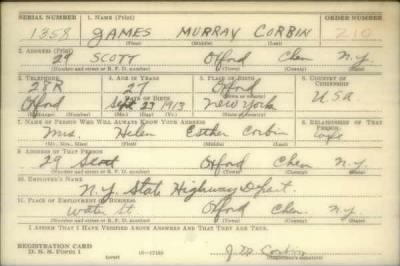 SERIAL NUMBER 1. NAME (Print) ORDER NUMBER
1358 JAMES MURRAY CORBIN 210
(First) (Middle) (Last)
2. ADDRESS (Print)
29 SCOTT Oxford Chen N.Y.
(Number and street or R. F. D. number) (Town) (County) (State)
3. TELEPHONE 4. AGE IN YEARS 5. PLACE OF BIRTH 6. COUNTRY OF CITIZENSHIP
28R 27 Oxford
DATE OF BIRTH (Town or county)
Oxford Sept 23 1913 New York U.S.A
(Exchange) (Number) (Mo.) (Day) (Yr.) (State or country)
7. NAME OF PERSON WHO WILL ALWAYS KNOW YOUR ADDRESS 8. RELATIONSHIP OF THAT PERSON
Mrs. Helen Esther Corbin wife
(Mr., Mrs., Miss) (First) (Middle) (Last)
9. ADDRESS OF THAT PERSON
29 Scott Oxford Chen N.Y.
(Number and street or R. F. D. number) (Town) (County) (State)
10. EMPLOYER'S NAME
N.Y. State Highway Dept.
11. PLACE OF EMPLOYMENT OR BUSINESS
Water St. Oxford Chen. N.Y.
(Number and street or R. F. D. number) (Town) (County) (State)
I AFFIRM THAT I HAVE VERIFIED ABOVE ANSWERS AND THAT THEY ARE TRUE.
REGISTRATION CARD
D. S. S. Form 1 16-17105 J M Corbin
(over) (Registrant's signature)